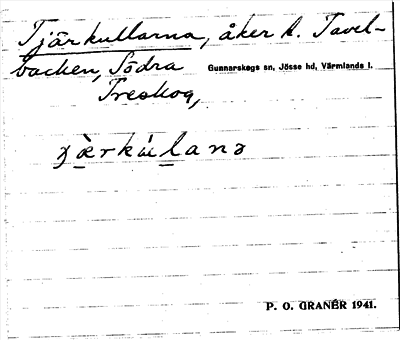 Tjärkullarna, åker h. Tavel-
backen, Södra Gunnarskogs sn, Jösse hd, Värmlands l.
Treskog,
P. O. GRANÉR 1941.